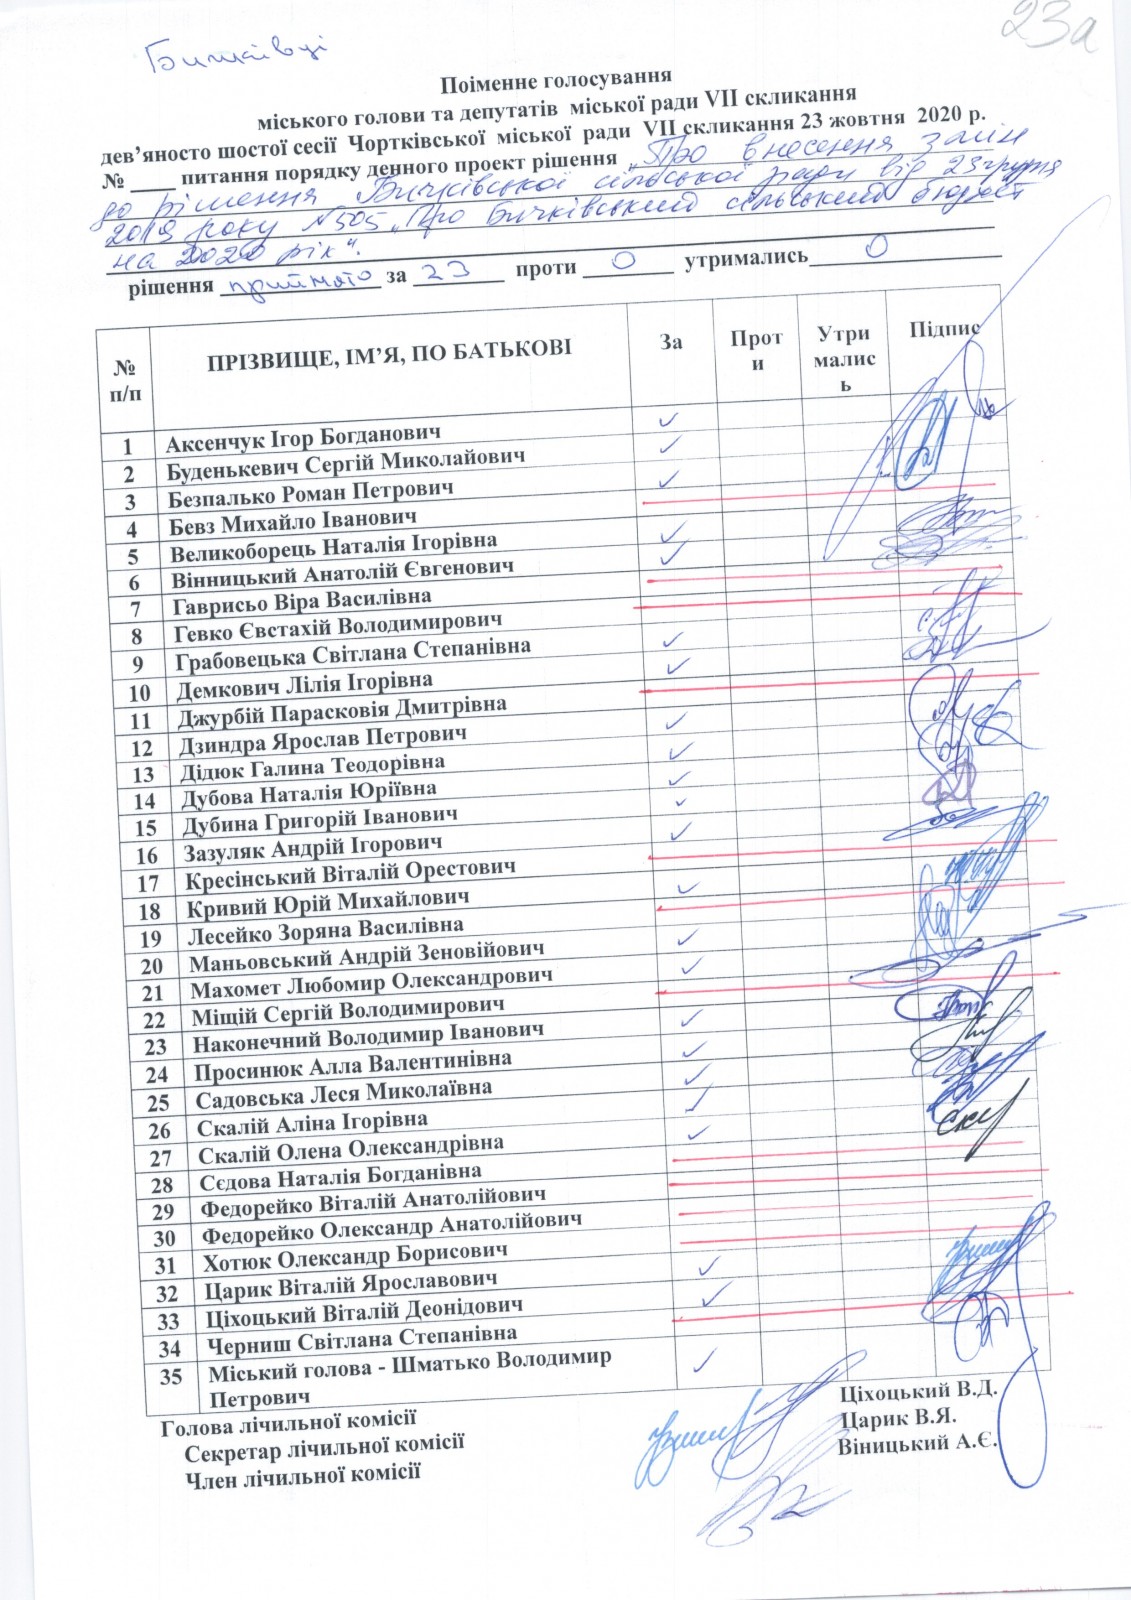 23а
Бичківці
Поіменне голосування
міського голови та депутатів міської ради VII скликання
дев’яносто шостої сесії Чортківської міської ради VII скликання 23 жовтня 2020 р.
№ ____ питання порядку денного проект рішення „Про внесення змін
до рішення Бичківської сільської ради від 23 грудня
2019 року №505 „Про Бичківський сільський бюджет
на 2020 рік“.
рішення прийнято за 23 проти 0 утримались 0
№ п/п ПРІЗВИЩЕ, ІМ’Я, ПО БАТЬКОВІ За Проти Утримались Підпис
1 Аксенчук Ігор Богданович ✓
2 Буденькевич Сергій Миколайович ✓
3 Безпалько Роман Петрович ✓
4 Бевз Михайло Іванович
5 Великоборець Наталія Ігорівна ✓
6 Вінницький Анатолій Євгенович ✓
7 Гаврисьо Віра Василівна
8 Гевко Євстахій Володимирович
9 Грабовецька Світлана Степанівна ✓
10 Демкович Лілія Ігорівна ✓
11 Джурбій Парасковія Дмитрівна
12 Дзиндра Ярослав Петрович ✓
13 Дідюк Галина Теодорівна ✓
14 Дубова Наталія Юріївна ✓
15 Дубина Григорій Іванович ✓
16 Зазуляк Андрій Ігорович ✓
17 Кресінський Віталій Орестович
18 Кривий Юрій Михайлович ✓
19 Лесейко Зоряна Василівна
20 Маньовський Андрій Зеновійович ✓
21 Махомет Любомир Олександрович ✓
22 Міщій Сергій Володимирович
23 Наконечний Володимир Іванович ✓
24 Просинюк Алла Валентинівна ✓
25 Садовська Леся Миколаївна ✓
26 Скалій Аліна Ігорівна ✓
27 Скалій Олена Олександрівна ✓
28 Сєдова Наталія Богданівна
29 Федорейко Віталій Анатолійович
30 Федорейко Олександр Анатолійович
31 Хотюк Олександр Борисович
32 Царик Віталій Ярославович ✓
33 Ціхоцький Віталій Деонідович ✓
34 Черниш Світлана Степанівна
35 Міський голова - Шматько Володимир ✓
Петрович
Голова лічильної комісії Ціхоцький В.Д.
Секретар лічильної комісії Царик В.Я.
Член лічильної комісії Віницький А.Є.